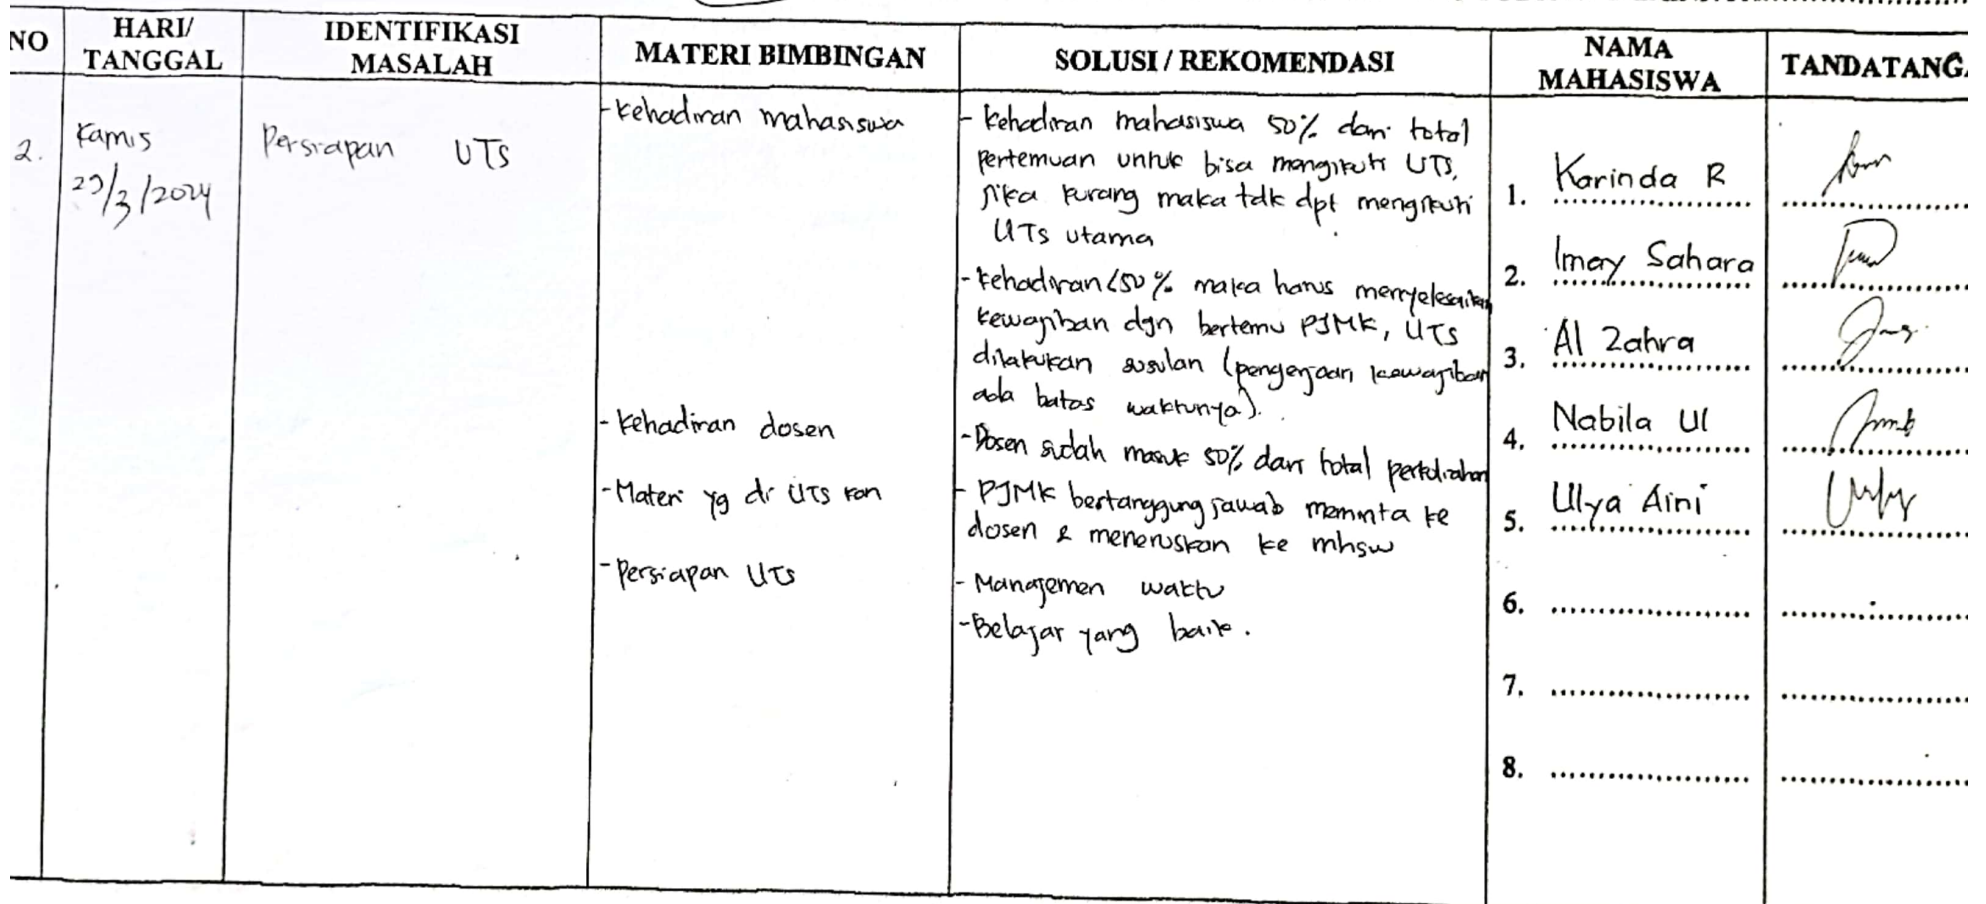 NO
HARI/
TANGGAL
IDENTIFIKASI
MASALAH
MATERI BIMBINGAN
SOLUSI / REKOMENDASI
NAMA
MAHASISWA
TANDATANGA
2.
Kamis
/3/2024
Persiapan UTS
- Kehadiran mahasiswa
- Kehadiran dosen
- Materi yg di UTS kan
- Persiapan UTS
- Kehadiran mahasiswa 50% dari total
pertemuan untuk bisa mengikuti UTS,
jika kurang maka tdk dpt mengikuti
UTS utama
- Kehadiran <50% maka harus menyelesaikan
kewajiban dgn bertemu PJMK, UTS
dilakukan susulan (pengerjaan kewajiban
ada batas waktunya).
- Dosen sudah masuk 50% dari total perkuliahan
- PJMK bertanggung jawab meminta ke
dosen & meneruskan ke mhsw
- Manajemen waktu
- Belajar yang baik.
1. Karinda R
2. Imay Sahara
3. Al Zahra
4. Nabila Ul
5. Ulya Aini
6.
7.
8.